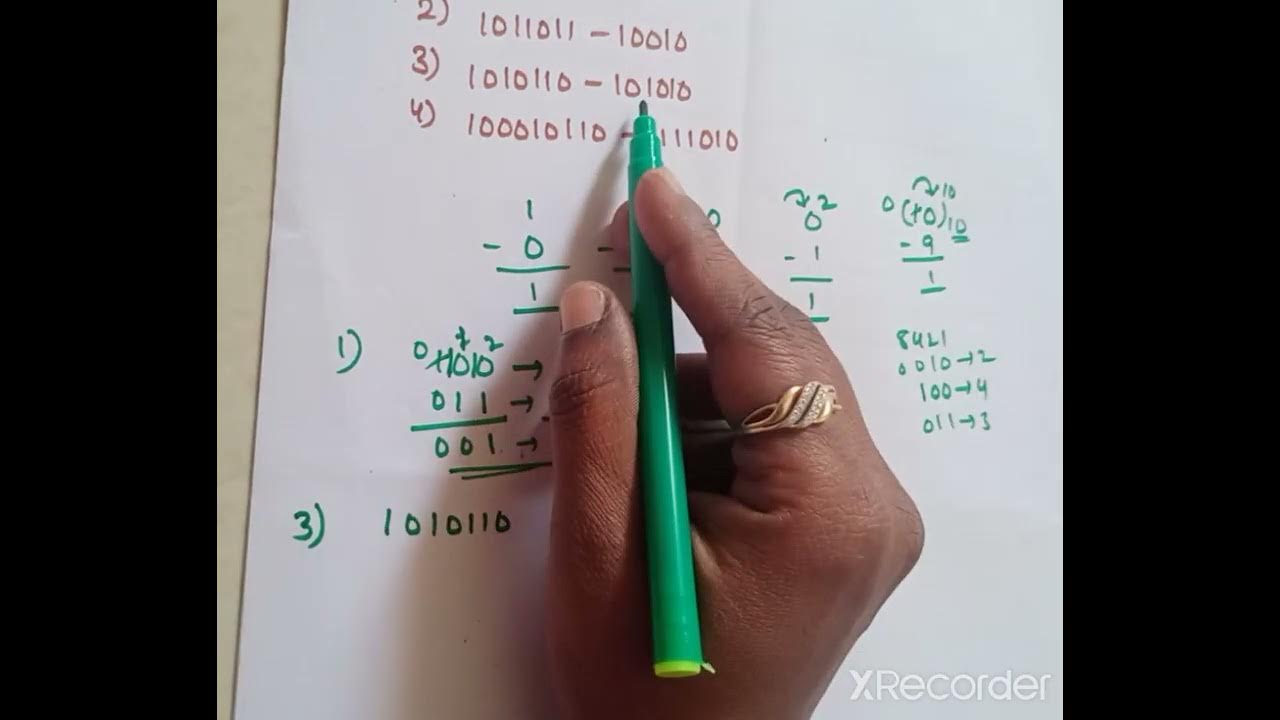 2) 1011011 - 10010
3) 1010110 - 101010
4) 100010110 - 111010
1
- 0
1
0
-
2
0
- 1
1
10
0 (10)10
- 9
1
1) 0 1 2
1010 →
011 →
001 →
8421
0010 → 2
100 → 4
011 → 3
3) 1010110
XRecorder